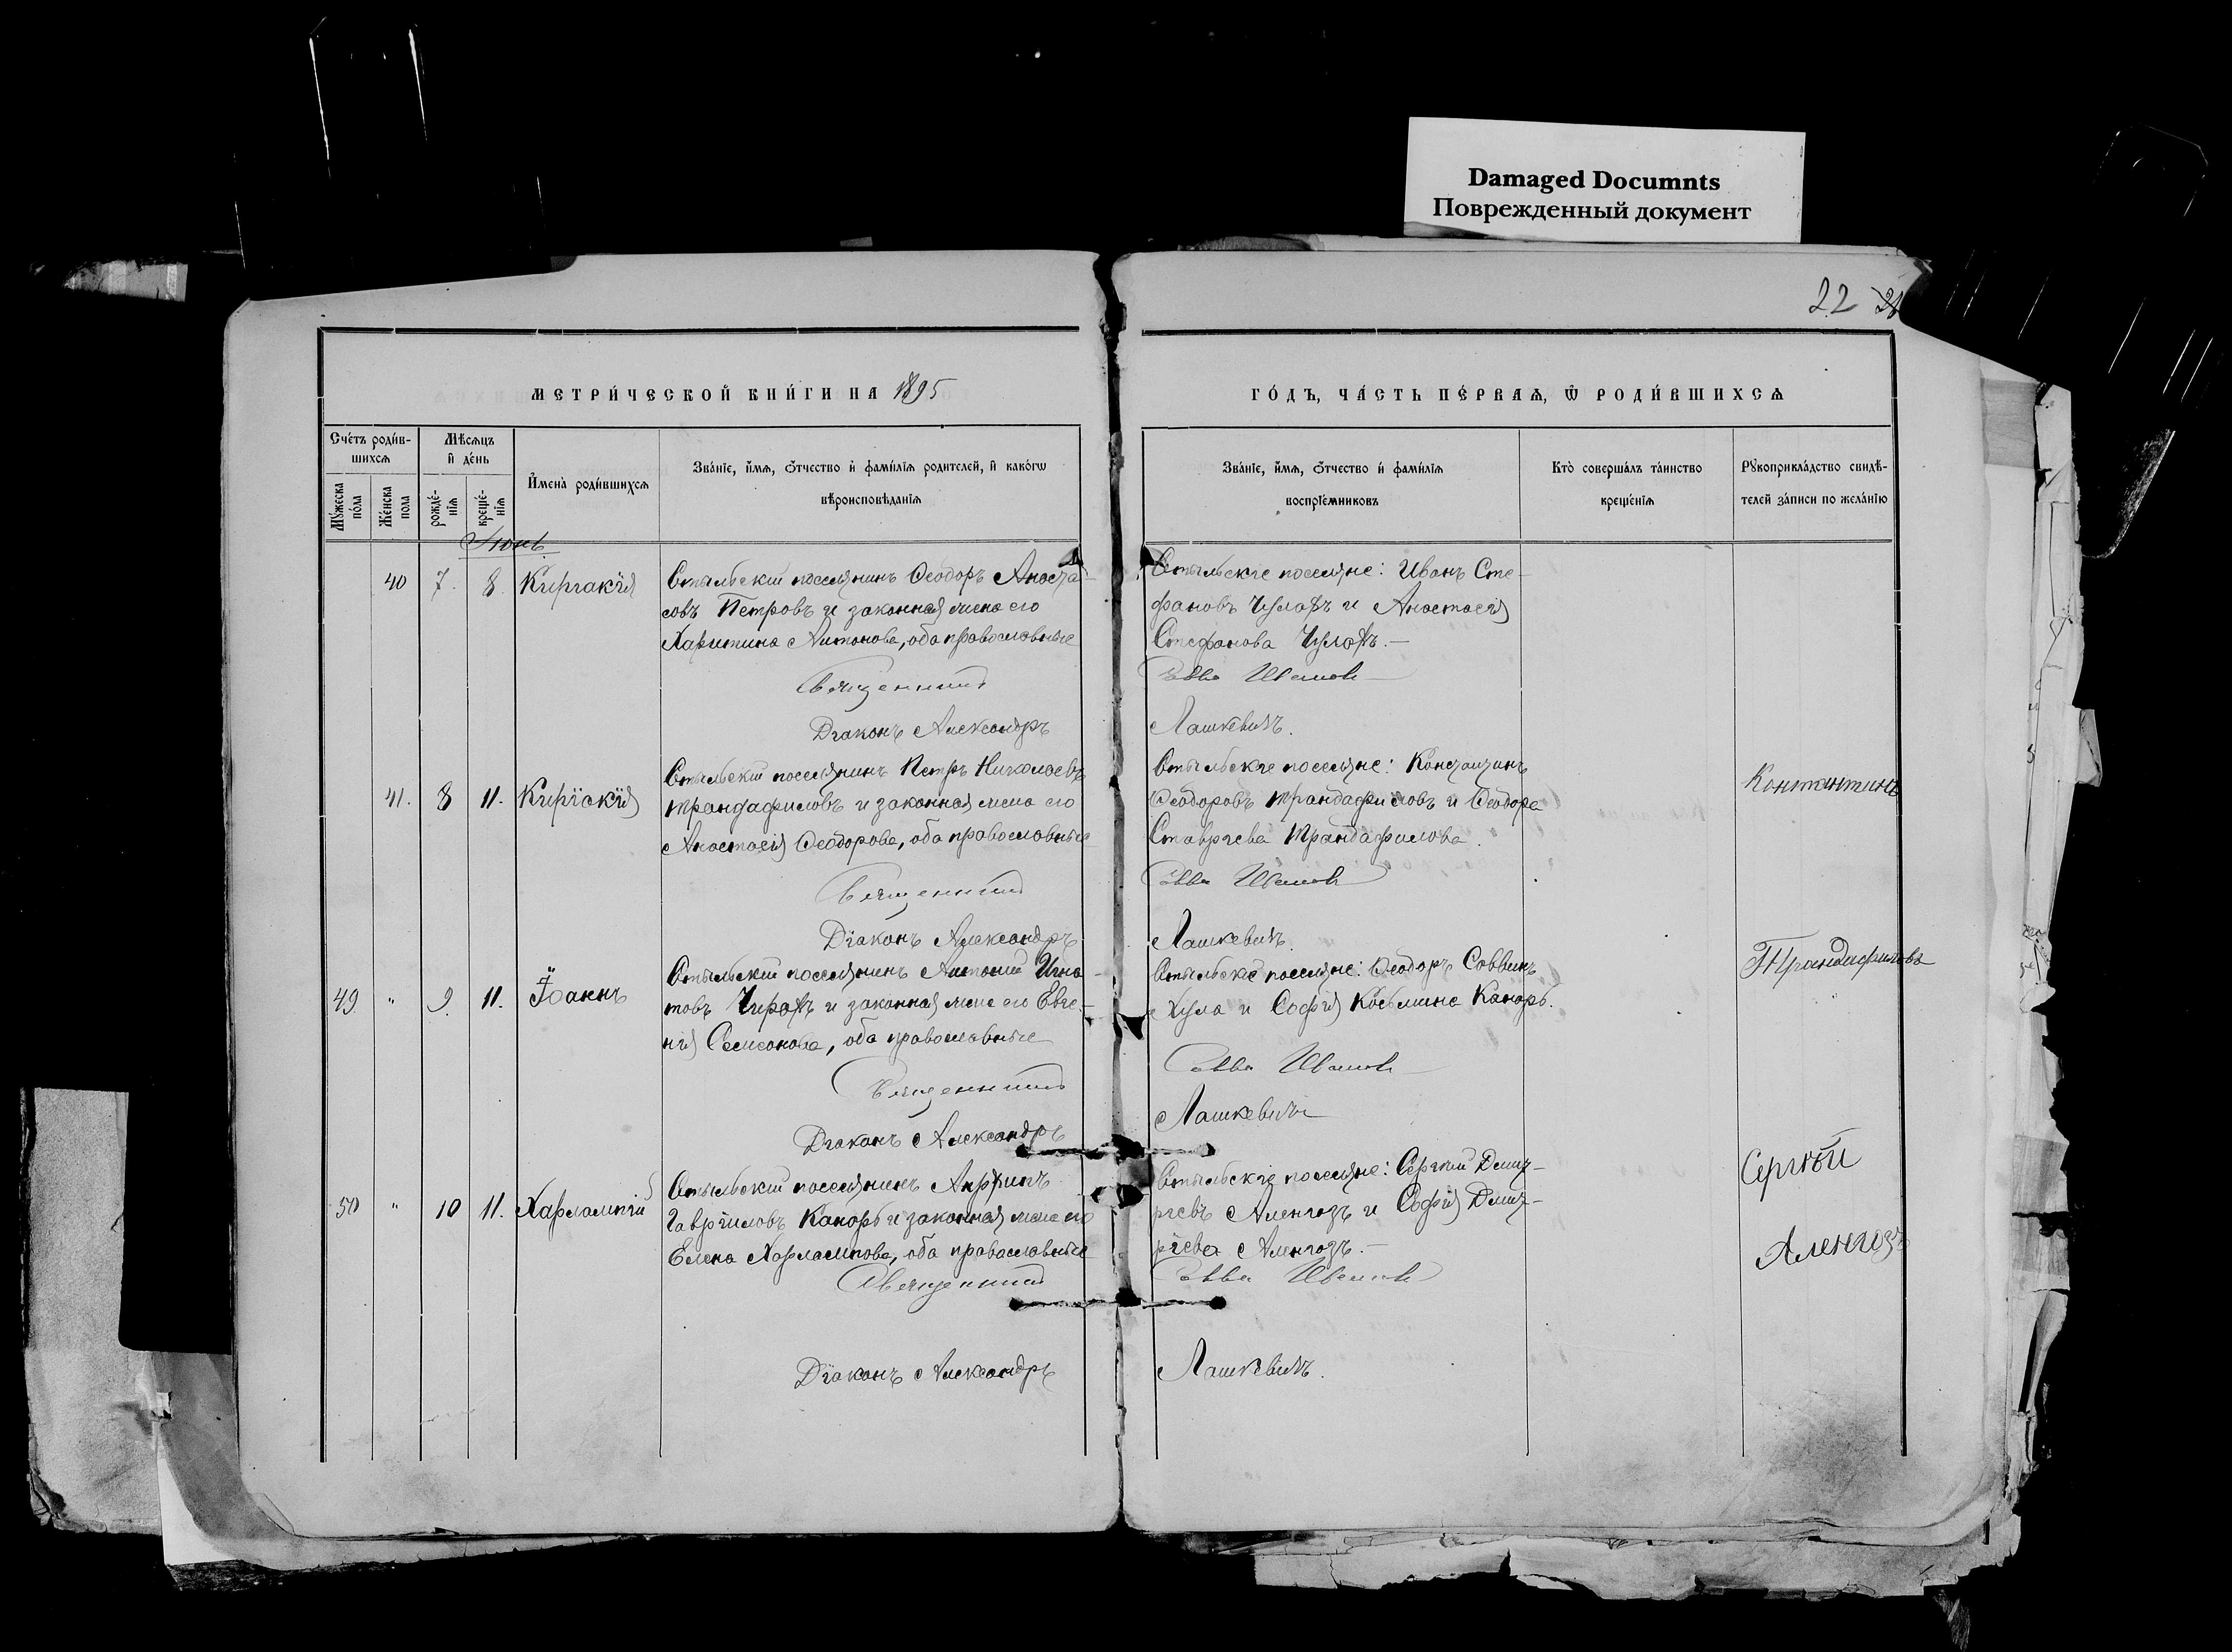 Damaged Documnts
Поврежденный документ
22 21
МЕТРИ́ЧЕСКОЙ КНИ́ГИ НА 1895
ГО́ДЪ, ЧА́СТЬ ПЕ́РВАѦ, Ѿ РОДИ́ВШИХСѦ
Сче́тъ роди́в-
шихсѧ
Мѣсѧцъ
и҆ де́нь
Му́жеска по́ла
Же́нска пола
рожде́-
нїѧ
креще́-
нїѧ
И҆мена̀ роди́вшихсѧ
Зва́нїе, и҆́мѧ, ѻ҆́тчество и҆ фами́лїѧ родителей, и҆ како́гѡ
вѣроисповѣданїѧ
Зва́нїе, и҆́мѧ, ѻ҆́тчество и҆ фами́лїѧ
воспрїе́мниковъ
Кто̀ соверша́лъ та́инство
креще́нїѧ
Рꙋкоприкла́дство свидѣ́-
телей за́писи по жела́нїю
Іюнь
40 7. 8. Киріакія
Стыльскій поселянинъ Ѳеодоръ Анаста-
совъ Петровъ и законная жена его
Харитина Антонова, оба православные
Стыльскіе поселяне: Иванъ Сте-
фановъ Чулахъ и Анастасія
Стефанова Чулахъ.—
Священникъ Савва Иванов
Діаконъ Александръ Лашкевичъ.
41. 8 11. Киріакія
Стыльскій поселянинъ Петръ Николаевъ
Трандафиловъ и законная жена его
Анастасія Ѳеодорова, оба православные
Стыльскіе поселяне: Константинъ
Ѳеодоровъ Трандафиловъ и Ѳеодора
Ставріева Трандафилова.
Константинъ
Трандафиловъ
Священникъ Савва Иванов
Діаконъ Александръ Лашкевичъ.
49 " 9. 11. Іоаннъ
Стыльскій поселянинъ Антоній Игна-
товъ Чирахъ и законная жена его Евге-
нія Самсонова, оба православные
Стыльскіе поселяне: Ѳеодоръ Саввинъ
Хула и Софія Косьмина Канаръ.
Священникъ Савва Иванов
Діаконъ Александръ Лашкевичъ
50 " 10 11. Харлампій
Стыльскій поселянинъ Анфимъ
Гавріиловъ Канаръ и законная жена его
Елена Харлампова, оба православные
Стыльскіе поселяне: Сергій Дмит-
ріевъ Аленгозъ и Софія Дмит-
ріева Аленгозъ.—
Сергѣй
Аленгозъ
Священникъ Савва Иванов
Діаконъ Александръ Лашкевичъ.